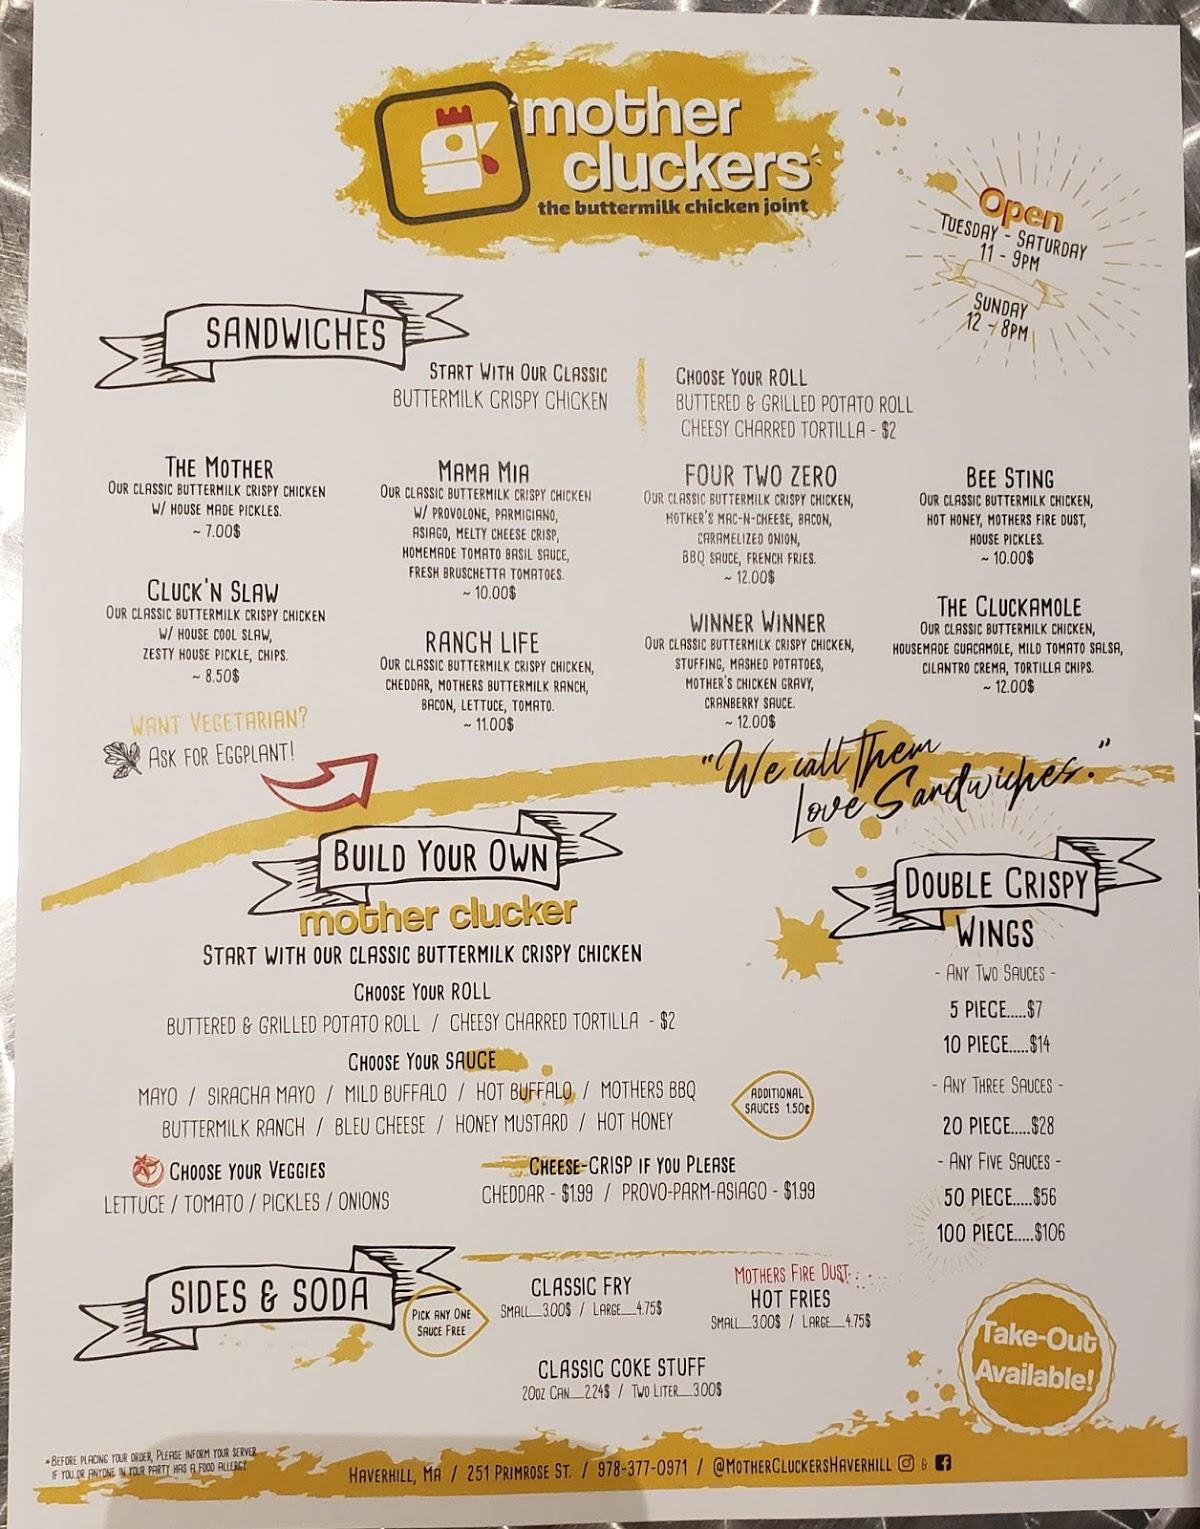 mother
cluckers
the buttermilk chicken joint
Open
TUESDAY - SATURDAY
11 - 9PM
SUNDAY
12 - 8PM
SANDWICHES
START WITH OUR CLASSIC
BUTTERMILK CRISPY CHICKEN
CHOOSE YOUR ROLL
BUTTERED & GRILLED POTATO ROLL
CHEESY CHARRED TORTILLA - $2
THE MOTHER
OUR CLASSIC BUTTERMILK CRISPY CHICKEN
W/ HOUSE MADE PICKLES.
~ 7.00$
CLUCK'N SLAW
OUR CLASSIC BUTTERMILK CRISPY CHICKEN
W/ HOUSE COOL SLAW,
ZESTY HOUSE PICKLE, CHIPS.
~ 8.50$
WANT VEGETARIAN?
ASK FOR EGGPLANT!
MAMA MIA
OUR CLASSIC BUTTERMILK CRISPY CHICKEN
W/ PROVOLONE, PARMIGIANO,
ASIAGO, MELTY CHEESE CRISP,
HOMEMADE TOMATO BASIL SAUCE,
FRESH BRUSCHETTA TOMATOES.
~ 10.00$
RANCH LIFE
OUR CLASSIC BUTTERMILK CRISPY CHICKEN,
CHEDDAR, MOTHERS BUTTERMILK RANCH,
BACON, LETTUCE, TOMATO.
~ 11.00$
FOUR TWO ZERO
OUR CLASSIC BUTTERMILK CRISPY CHICKEN,
MOTHER'S MAC-N-CHEESE, BACON,
CARAMELIZED ONION,
BBQ SAUCE, FRENCH FRIES.
~ 12.00$
WINNER WINNER
OUR CLASSIC BUTTERMILK CRISPY CHICKEN,
STUFFING, MASHED POTATOES,
MOTHER'S CHICKEN GRAVY,
CRANBERRY SAUCE.
~ 12.00$
BEE STING
OUR CLASSIC BUTTERMILK CHICKEN,
HOT HONEY, MOTHERS FIRE DUST,
HOUSE PICKLES.
~ 10.00$
THE CLUCKAMOLE
OUR CLASSIC BUTTERMILK CHICKEN,
HOUSEMADE GUACAMOLE, MILD TOMATO SALSA,
CILANTRO CREMA, TORTILLA CHIPS.
~ 12.00$
"We call Them
Love Sandwiches."
BUILD YOUR OWN
mother clucker
START WITH OUR CLASSIC BUTTERMILK CRISPY CHICKEN
CHOOSE YOUR ROLL
BUTTERED & GRILLED POTATO ROLL / CHEESY CHARRED TORTILLA - $2
CHOOSE YOUR SAUCE
MAYO / SIRACHA MAYO / MILD BUFFALO / HOT BUFFALO / MOTHERS BBQ
BUTTERMILK RANCH / BLEU CHEESE / HONEY MUSTARD / HOT HONEY
ADDITIONAL
SAUCES 1.50¢
CHOOSE YOUR VEGGIES
LETTUCE / TOMATO / PICKLES / ONIONS
CHEESE-CRISP IF YOU PLEASE
CHEDDAR - $1.99 / PROVO-PARM-ASIAGO - $1.99
DOUBLE CRISPY
WINGS
- ANY TWO SAUCES -
5 PIECE.....$7
10 PIECE.....$14
- ANY THREE SAUCES -
20 PIECE.....$28
- ANY FIVE SAUCES -
50 PIECE.....$56
100 PIECE.....$106
SIDES & SODA
PICK ANY ONE
SAUCE FREE
CLASSIC FRY
SMALL__3.00$ / LARGE__4.75$
MOTHERS FIRE DUST
HOT FRIES
SMALL__3.00$ / LARGE__4.75$
CLASSIC COKE STUFF
20OZ CAN__2.24$ / TWO LITER__3.00$
Take-Out
Available!
*BEFORE PLACING YOUR ORDER, PLEASE INFORM YOUR SERVER
IF YOU OR ANYONE IN YOUR PARTY HAS A FOOD ALLERGY
HAVERHILL, MA / 251 PRIMROSE ST. / 978-377-0971 / @MOTHERCLUCKERSHAVERHILL &